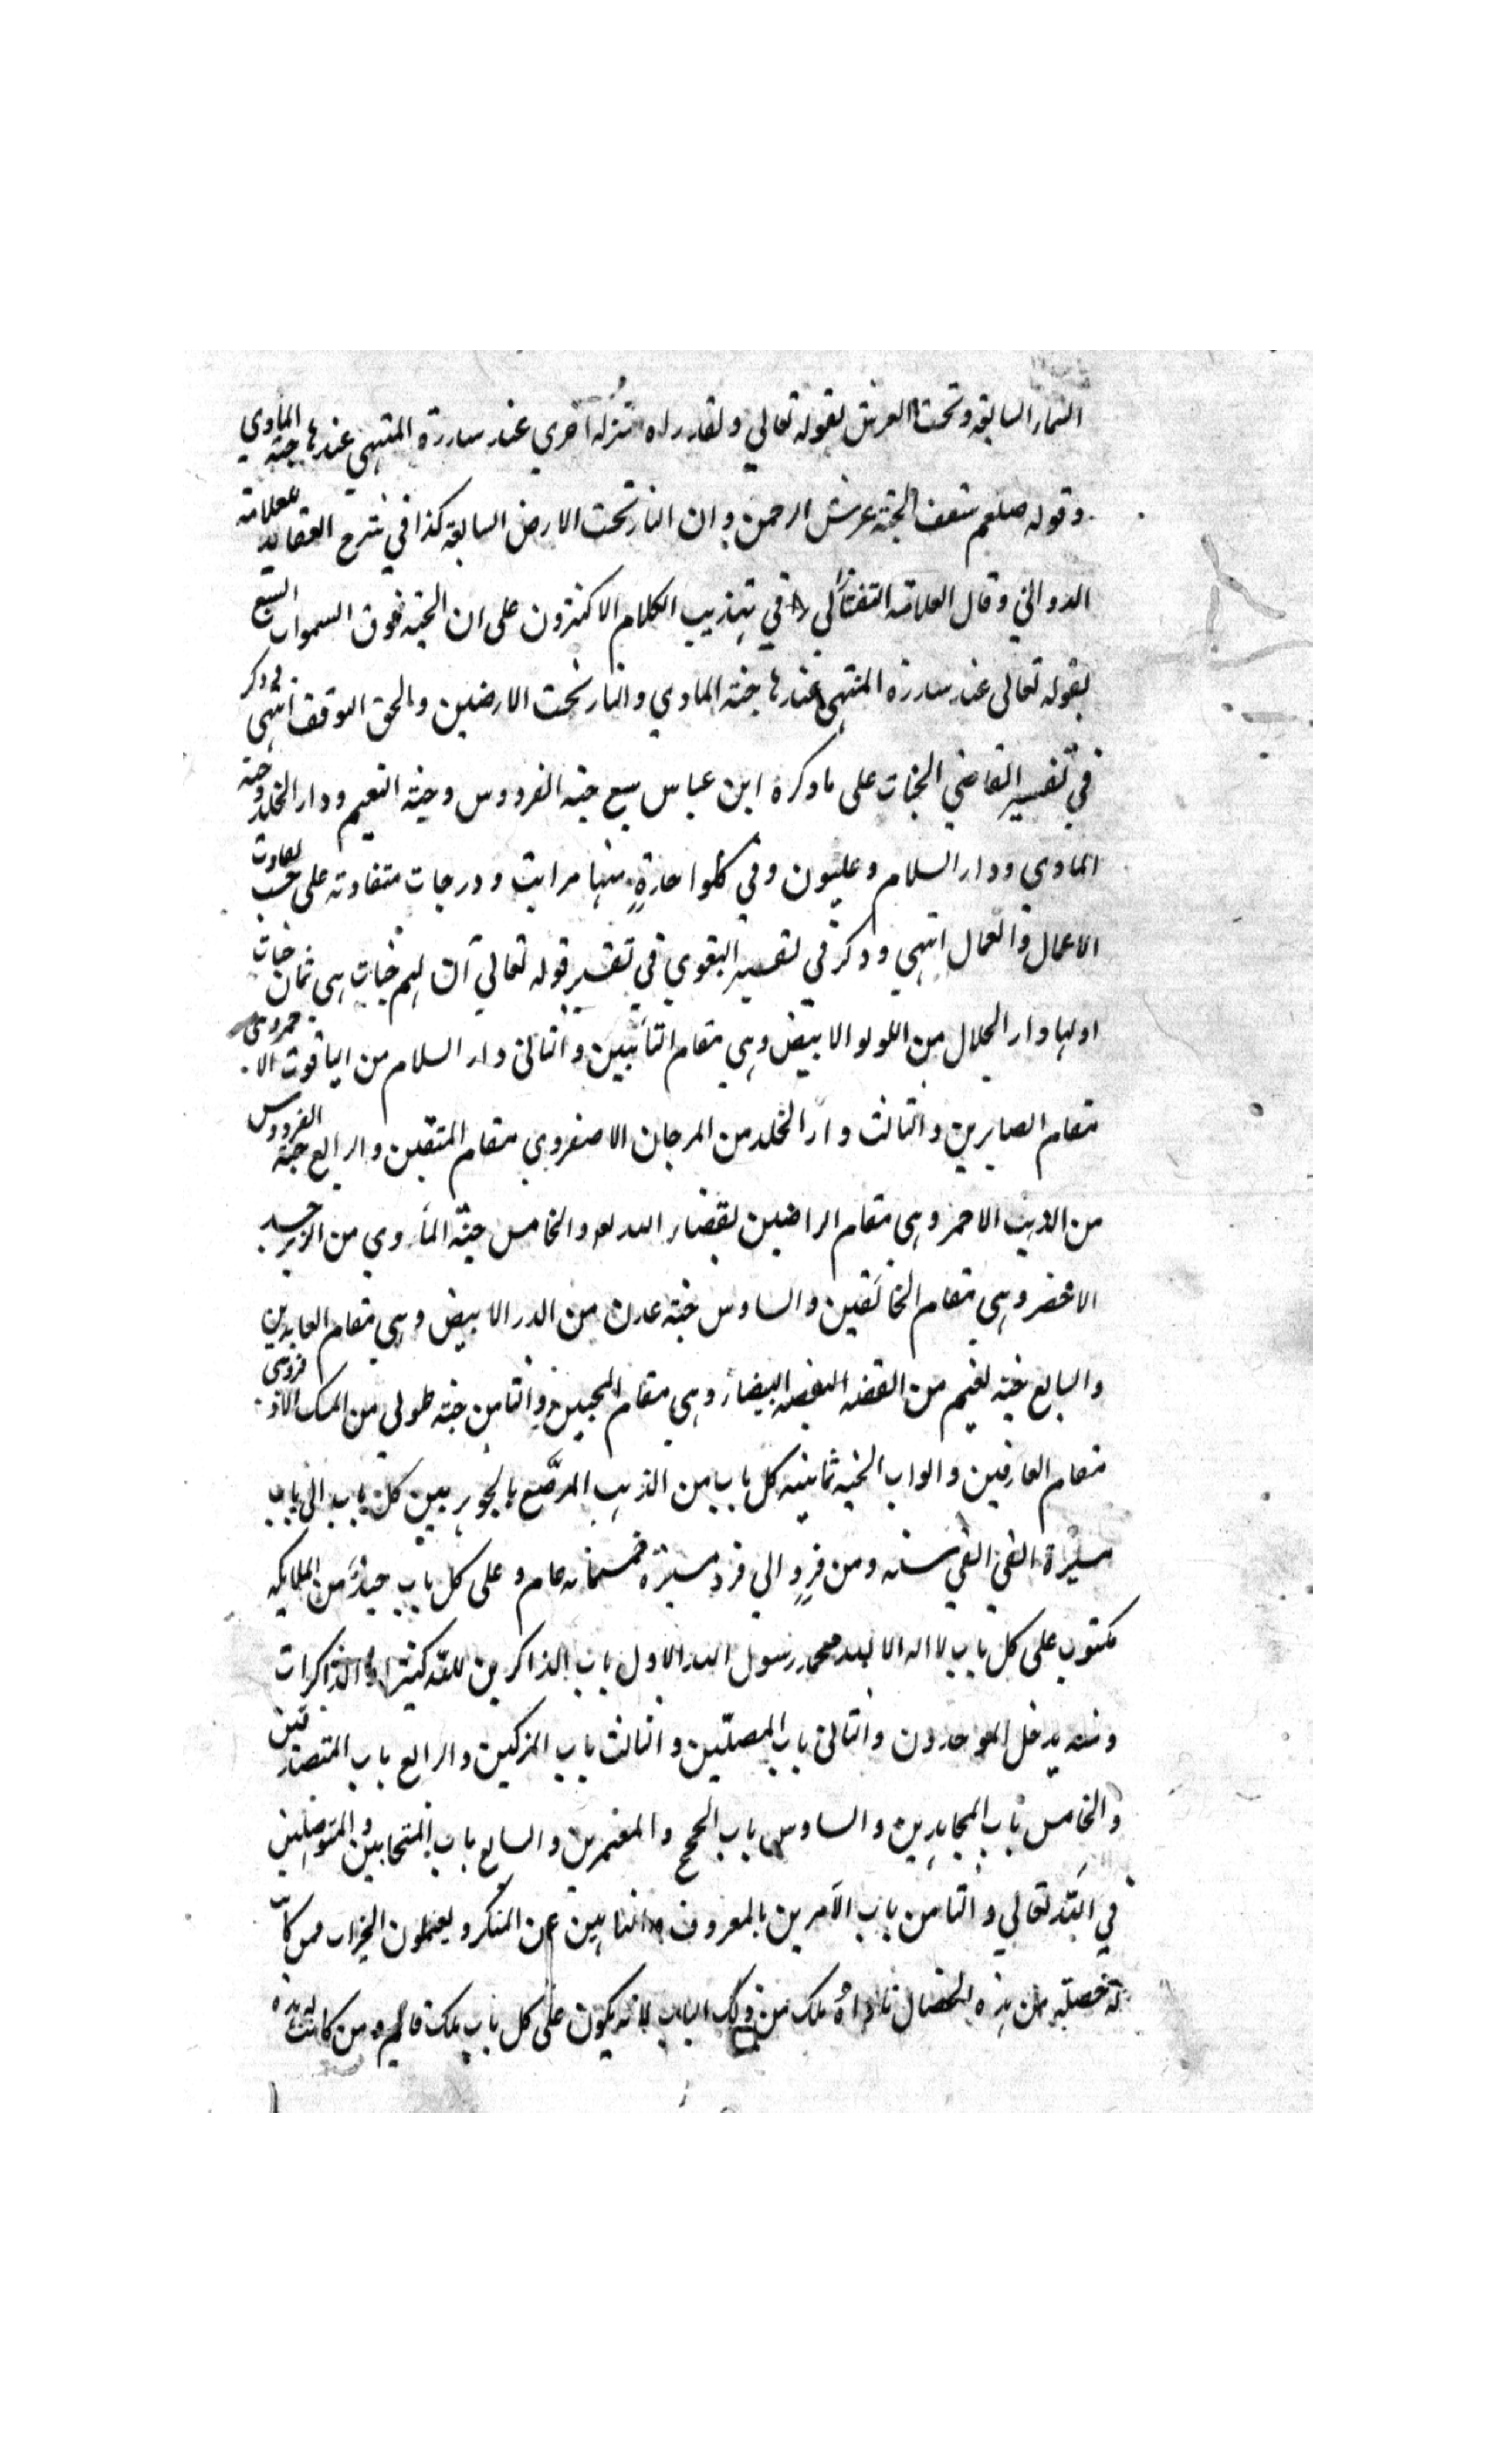 السماء السابعة وتحت العرش لقوله تعالي ولقد راه نزلة اخري عند سدرة المنتهي عندها جنة المأوي
وقوله صلعم سقف الجنة عرش الرحمن وان النار تحت الارض السابعة كذا في شرح العقايد للعلامة
الدواني وقال العلامة التفتازاني في تهذيب الكلام الاكثرون علي ان الجنة فوق السموات السبع
لقوله تعالى عند سدرة المنتهي عندها جنة الماوي والنار تحت الارضين والحق التوقف انتهي وذكر
في تفسير القاضي الجنات على ما ذكره ابن عباس سبع جنة الفردوس وجنة النعيم ودار الخلد وجنة
الماوي ودار السلام وعليون وفي كلواحدة منها مراتب ودرجات متفاوتة على حسب تفاوت
الاعمال والعمال انتهي وذكر في تفسير البغوي في تفسير قوله تعالي ان لهم جنات هي ثمان جنات
اولها دار الجلال من اللولو الابيض وهي مقام التائبين والثاني دار السلام من الياقوت الاحمر وهى
مقام الصابرين والثالث دار الخلد من المرجان الاصفر وهي مقام المتقين والرابع جنة الفردوس
من الذهب الاحمر وهي مقام الراضين بقضاء الله والخامس جنة المأوي من الزبرجد
الاخضر وهي مقام الخائفين والسادس جنة عدن من الدر الابيض وهي مقام العابدين
والسابع جنة نعيم من الفضة البيضاء وهي مقام المحبين والثامن جنة طوبى من المسك الاذفر وهى
مقام العارفين وابواب الجنة ثمانية كل باب من الذهب المرصّع بالجوهر بين كل باب الى باب
مسيرة الفي الفي سنة ومن فرد الي فرد مسيرة خمسمائة عام وعلى كل باب جند من الملايكة
مكتوب على كل باب لا اله الا الله محمد رسول الله الاول باب الذاكرين لله كثيرا والذاكرات
ومنه يدخل الموحدون والثاني باب المصلّين والثالث باب المزكين والرابع باب المتصدقين
والخامس باب المجاهدين والسادس باب الحج والمعتمرين والسابع باب المتحابين والمتوصلين
في الله تعالي والثامن باب الآمرين بالمعروف والناهين عن المنكر ويعملون الخيرات فمن كان
له خصلة من هذه الخصال ناداه ملك من ذلك الباب لانه يكون على كل باب ملك قائم ومن كانت له هذه